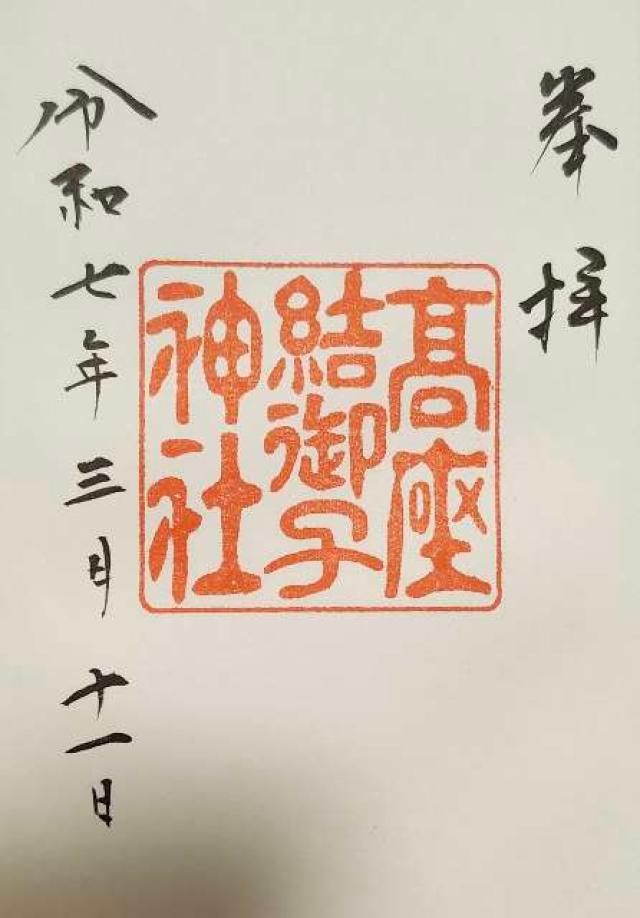 奉拝
髙座
結御子
神社
令和七年三月十一日